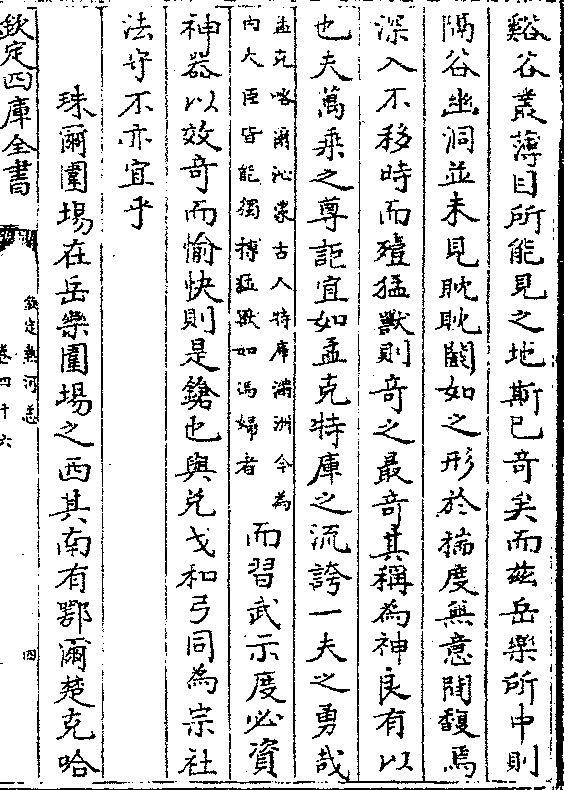 谿谷叢薄目所能見之地斯已竒矣而兹岳樂所中則
隔谷幽洞並未見眈眈闞如之形於揣度無意間馥焉
深入不移時而殪猛獸則竒之最竒其稱為神良有以
也夫萬乘之尊詎宜如孟克特庫之流誇一夫之勇哉
孟克喀爾沁蒙古人特庫滿洲今為
内大臣皆能獨搏猛獸如馮婦者
而習武示度必資
神器以效竒而愉快則是鎗也與兊戈和弓同為宗社
法守不亦宜乎
珠爾圍場在岳樂圍場之西其南有鄂爾楚克哈
欽定四庫全書
欽定熱河志
卷四十六
四